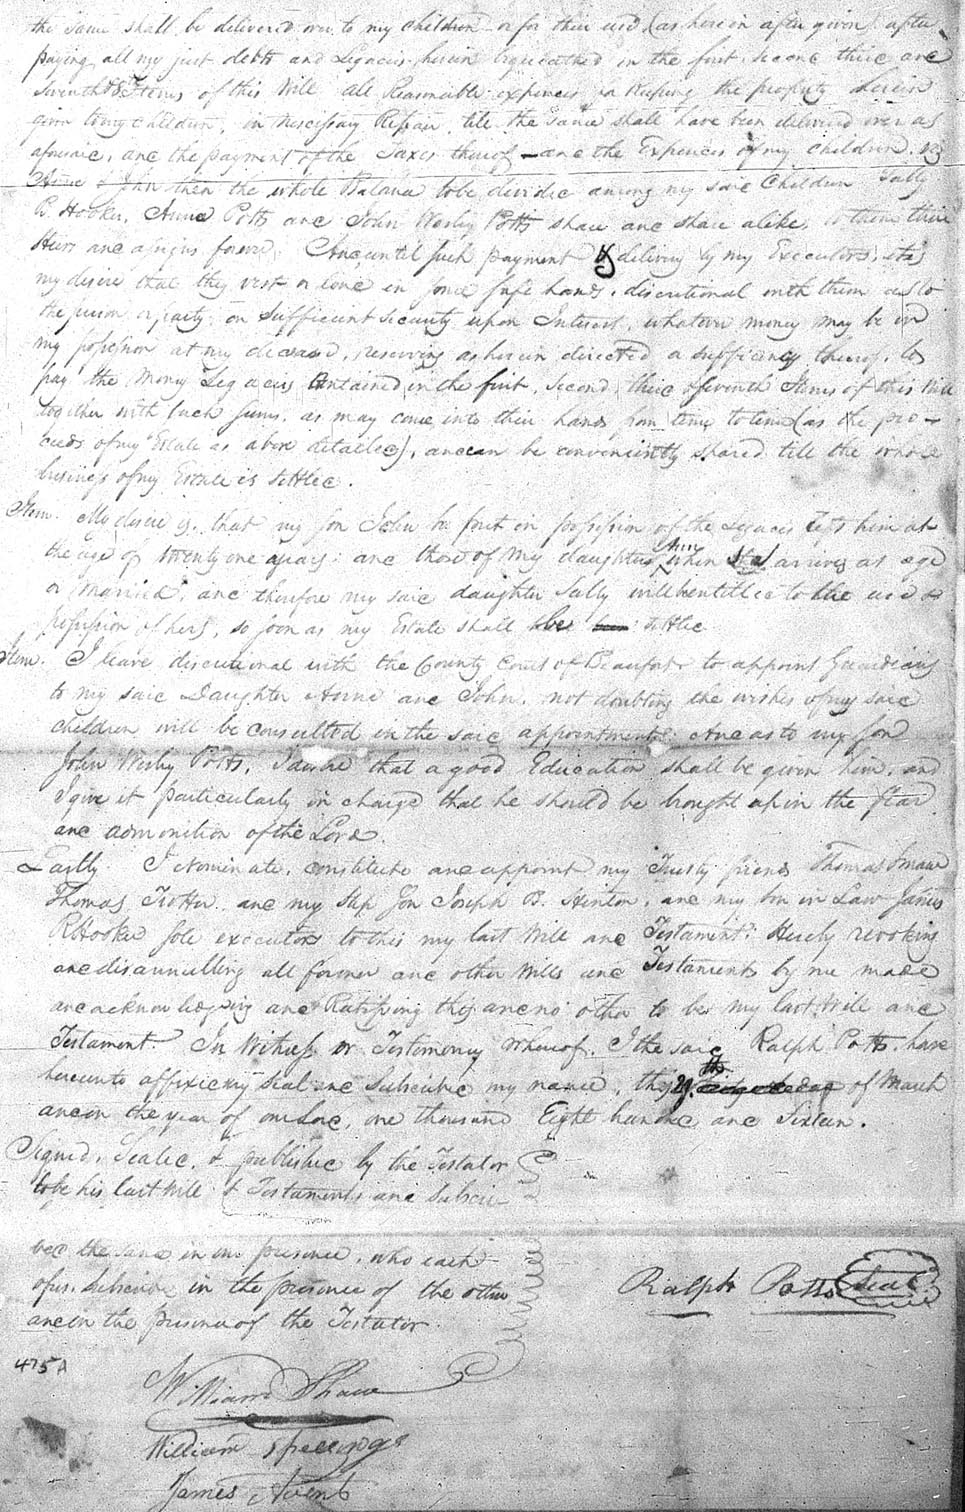 the same shall be delivered over to my children or for their use, (as here in after given) after
paying all my just debts and Legacies herein bequeathed in the first, second third and
seventh & Items of this Will all Reasonable expences in keeping the property herein
given to my children, in necessary Repair till the same shall have been delivered over as
aforesaid, and the payment of the Taxes thereof - and the Expences of my children, viz
Anne & John then the whole Balance to be divided among my said Children Sally
B. Hooker, Anna Potts and John Wesley Potts share and share alike, to them their
Heirs and assigns forever, And until such payment & delivery by my Executors, it is
my desire that they vest or lone in some safe hands, discretional with them as to
the person or party on sufficient security upon Interest, whatever money may be in
my possession at my decease, reserving as herein directed a sufficiency thereof, to
pay the Money Legacies Contained in the first, second, third & seventh Items of this Will
together with such sums, as may come into their hands from time to time (as the pro-
ceeds of my Estate as above detailed), and can be conveniently spared till the whole
business of my Estate is settled.
Item. My desire is, that my son John be put in possession of the Legacies left him at
the age of twenty one years: and those of my daughter Ann when she arrives at age
or married, and therefore my said daughter Sally will be entitled to the use &
possession of hers, so soon as my Estate shall be settled
Item. I leave discretional with the County Court of Beaufort to appoint Guardians
to my said Daughter Anne and John, not doubting the wishes of my said
children will be consulted in the said appointments: And as to my son
John Wesley Potts, I desire that a good Education shall be given him, and
I give it particularly in charge that he should be brought up in the fear
and admonition of the Lord.
Lastly I nominate, constitute and appoint my Trusty friends Thomas Smaw
Thomas Trotter and my Step Son Joseph B. Hinton, and my son in Law James
R Hooker sole executors to this my last Will and Testament: Hereby revoking
and disannulling all former and other Wills and Testaments by me made
and acknowledging and Ratifying this and no other to be my last Will and
Testament In Witness or Testimony whereof, I the said Ralph Potts have
hereunto affixed my seal and subscribe my name, this 29th day of March
and in the year of our Lord, one thousand Eight hundred and Sixteen.
Signed, Sealed, & published by the Testator
to be his last Will & Testament and subscri-
bed the same in our presence, who each
of us subscribed in the presence of the other
and in the presence of the Testator.
Ralph Potts Seal
475A
William Shaw
William Spellings
James Avent